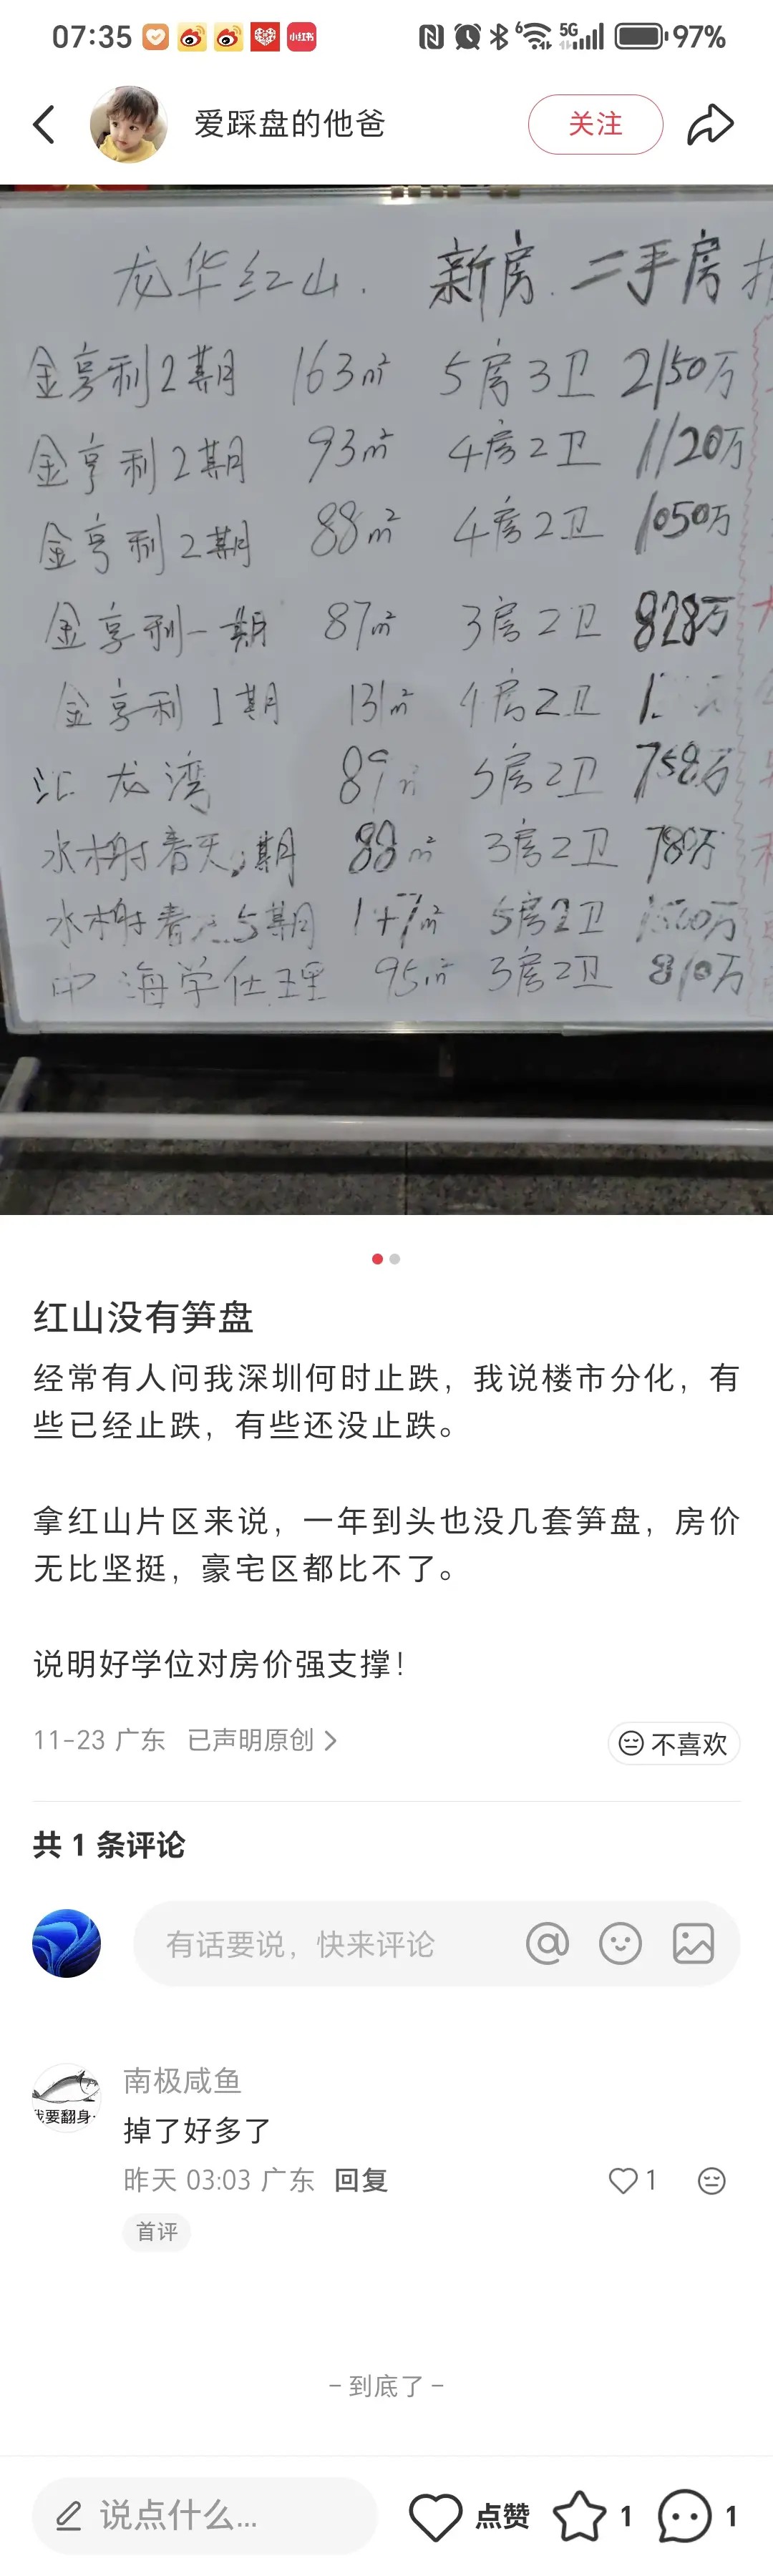 07:35
小红书
6
5G
97%
爱踩盘的他爸
关注
龙华红山. 新房. 二手房
金亨利2期 163m² 5房3卫 2150万
金亨利2期 93m² 4房2卫 1120万
金亨利2期 88m² 4房2卫 1050万
金亨利一期 87m² 3房2卫 828万
金亨利1期 131m² 4房2卫
汇龙湾 89㎡ 5房2卫 758万
水榭春天 期 88m² 3房2卫 780万
水榭春 5期 147m² 5房2卫
中海学仕里 95㎡ 3房2卫 810万
红山没有笋盘
经常有人问我深圳何时止跌，我说楼市分化，有
些已经止跌，有些还没止跌。
拿红山片区来说，一年到头也没几套笋盘，房价
无比坚挺，豪宅区都比不了。
说明好学位对房价强支撑！
11-23 广东 已声明原创
不喜欢
共 1 条评论
有话要说，快来评论
我要翻身
南极咸鱼
掉了好多了
昨天 03:03 广东 回复
1
首评
- 到底了 -
说点什么...
点赞
1
1